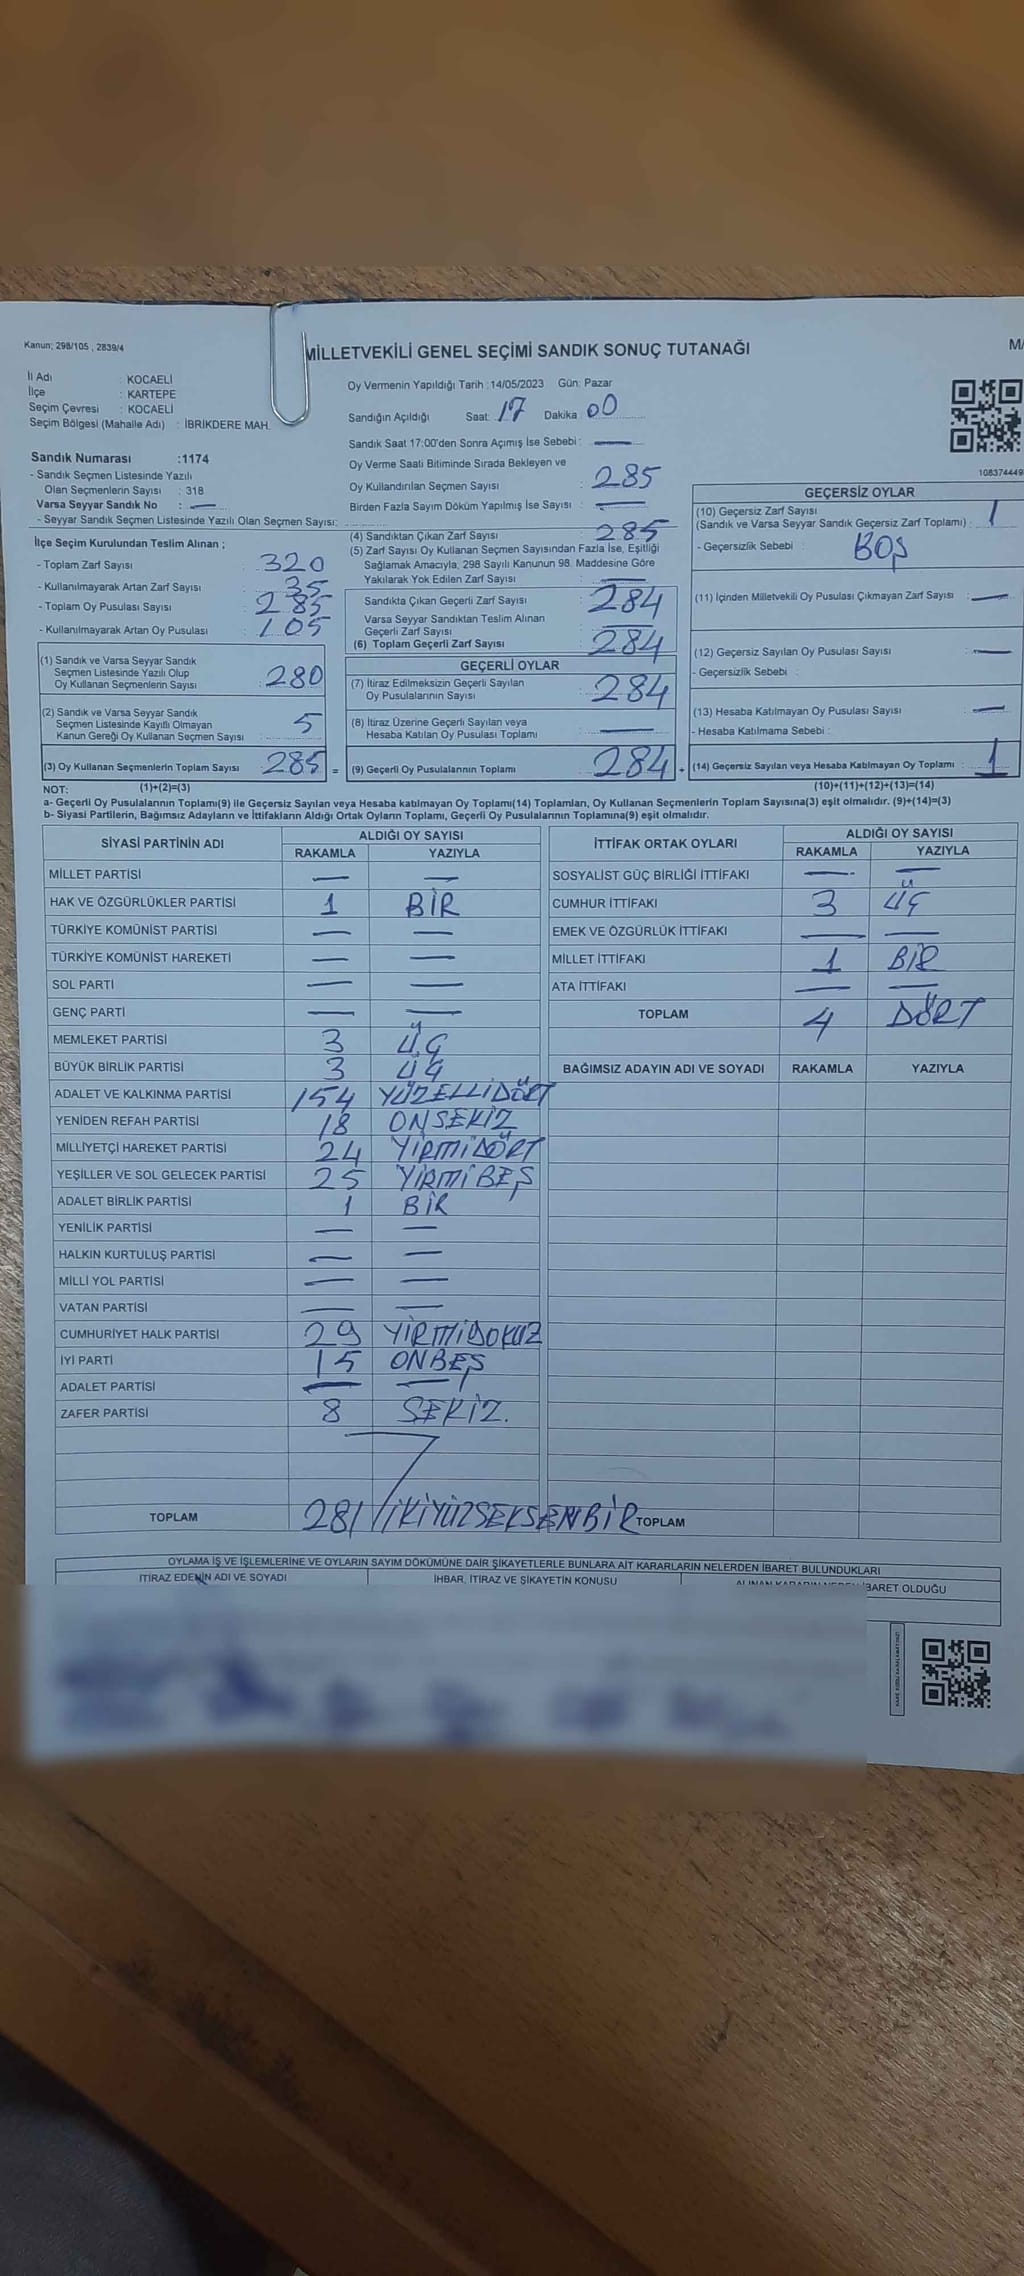 Kanun; 298/105 , 2839/4
MİLLETVEKİLİ GENEL SEÇİMİ SANDIK SONUÇ TUTANAĞI
İl Adı : KOCAELİ
İlçe : KARTEPE
Seçim Çevresi : KOCAELİ
Seçim Bölgesi (Mahalle Adı) : İBRİKDERE MAH.
Sandık Numarası :1174
- Sandık Seçmen Listesinde Yazılı
Olan Seçmenlerin Sayısı : 318
Varsa Seyyar Sandık No : —
- Seyyar Sandık Seçmen Listesinde Yazılı Olan Seçmen Sayısı:
İlçe Seçim Kurulundan Teslim Alınan ;
- Toplam Zarf Sayısı : 320
- Kullanılmayarak Artan Zarf Sayısı : 35
- Toplam Oy Pusulası Sayısı : 285
- Kullanılmayarak Artan Oy Pusulası : 105
(1) Sandık ve Varsa Seyyar Sandık
Seçmen Listesinde Yazılı Olup
Oy Kullanan Seçmenlerin Sayısı : 280
(2) Sandık ve Varsa Seyyar Sandık
Seçmen Listesinde Kayıtlı Olmayan
Kanun Gereği Oy Kullanan Seçmen Sayısı : 5
(3) Oy Kullanan Seçmenlerin Toplam Sayısı : 285 =
Oy Vermenin Yapıldığı Tarih :14/05/2023 Gün: Pazar
Sandığın Açıldığı Saat: 17 Dakika : 00
Sandık Saat 17:00'den Sonra Açımış İse Sebebi : —
Oy Verme Saati Bitiminde Sırada Bekleyen ve
Oy Kullandırılan Seçmen Sayısı : 285
Birden Fazla Sayım Döküm Yapılmış İse Sayısı : —
(4) Sandıktan Çıkan Zarf Sayısı : 285
(5) Zarf Sayısı Oy Kullanan Seçmen Sayısından Fazla İse, Eşitliği
Sağlamak Amacıyla, 298 Sayılı Kanunun 98. Maddesine Göre
Yakılarak Yok Edilen Zarf Sayısı : —
Sandıkta Çıkan Geçerli Zarf Sayısı : 284
Varsa Seyyar Sandıktan Teslim Alınan
Geçerli Zarf Sayısı : —
(6) Toplam Geçerli Zarf Sayısı : 284
GEÇERLİ OYLAR
(7) İtiraz Edilmeksizin Geçerli Sayılan
Oy Pusulalarının Sayısı : 284
(8) İtiraz Üzerine Geçerli Sayılan veya
Hesaba Katılan Oy Pusulası Toplamı : —
(9) Geçerli Oy Pusulalarının Toplamı : 284 +
108374449
GEÇERSİZ OYLAR
(10) Geçersiz Zarf Sayısı
(Sandık ve Varsa Seyyar Sandık Geçersiz Zarf Toplamı) : 1
- Geçersizlik Sebebi : BOŞ
(11) İçinden Milletvekili Oy Pusulası Çıkmayan Zarf Sayısı : —
(12) Geçersiz Sayılan Oy Pusulası Sayısı : —
- Geçersizlik Sebebi :
(13) Hesaba Katılmayan Oy Pusulası Sayısı : —
- Hesaba Katılmama Sebebi :
(14) Geçersiz Sayılan veya Hesaba Katılmayan Oy Toplamı : 1
NOT: (1)+(2)=(3) (10)+(11)+(12)+(13)=(14)
a- Geçerli Oy Pusulalarının Toplamı(9) ile Geçersiz Sayılan veya Hesaba katılmayan Oy Toplamı(14) Toplamları, Oy Kullanan Seçmenlerin Toplam Sayısına(3) eşit olmalıdır. (9)+(14)=(3)
b- Siyasi Partilerin, Bağımsız Adayların ve İttifakların Aldığı Ortak Oyların Toplamı, Geçerli Oy Pusulalarının Toplamına(9) eşit olmalıdır.
SİYASİ PARTİNİN ADI ALDIĞI OY SAYISI
RAKAMLA YAZIYLA
MİLLET PARTİSİ — —
HAK VE ÖZGÜRLÜKLER PARTİSİ 1 BİR
TÜRKİYE KOMÜNİST PARTİSİ — —
TÜRKİYE KOMÜNİST HAREKETİ — —
SOL PARTİ — —
GENÇ PARTİ — —
MEMLEKET PARTİSİ 3 ÜÇ
BÜYÜK BİRLİK PARTİSİ 3 ÜÇ
ADALET VE KALKINMA PARTİSİ 154 YÜZELLİDÖRT
YENİDEN REFAH PARTİSİ 18 ONSEKİZ
MİLLİYETÇİ HAREKET PARTİSİ 24 YİRMİDÖRT
YEŞİLLER VE SOL GELECEK PARTİSİ 25 YİRMİBEŞ
ADALET BİRLİK PARTİSİ 1 BİR
YENİLİK PARTİSİ — —
HALKIN KURTULUŞ PARTİSİ — —
MİLLİ YOL PARTİSİ — —
VATAN PARTİSİ — —
CUMHURİYET HALK PARTİSİ 29 YİRMİDOKUZ
İYİ PARTİ 15 ONBEŞ
ADALET PARTİSİ — —
ZAFER PARTİSİ 8 SEKİZ.
TOPLAM 281 / İKİYÜZSEKSENBİR
İTTİFAK ORTAK OYLARI ALDIĞI OY SAYISI
RAKAMLA YAZIYLA
SOSYALİST GÜÇ BİRLİĞİ İTTİFAKI — —
CUMHUR İTTİFAKI 3 ÜÇ
EMEK VE ÖZGÜRLÜK İTTİFAKI — —
MİLLET İTTİFAKI 1 BİR
ATA İTTİFAKI — —
TOPLAM 4 DÖRT
BAĞIMSIZ ADAYIN ADI VE SOYADI RAKAMLA YAZIYLA
TOPLAM
OYLAMA İŞ VE İŞLEMLERİNE VE OYLARIN SAYIM DÖKÜMÜNE DAİR ŞİKAYETLERLE BUNLARA AİT KARARLARIN NELERDEN İBARET BULUNDUKLARI
İTİRAZ EDENİN ADI VE SOYADI İHBAR, İTİRAZ VE ŞİKAYETİN KONUSU ALINAN KARARIN NEDEN İBARET OLDUĞU